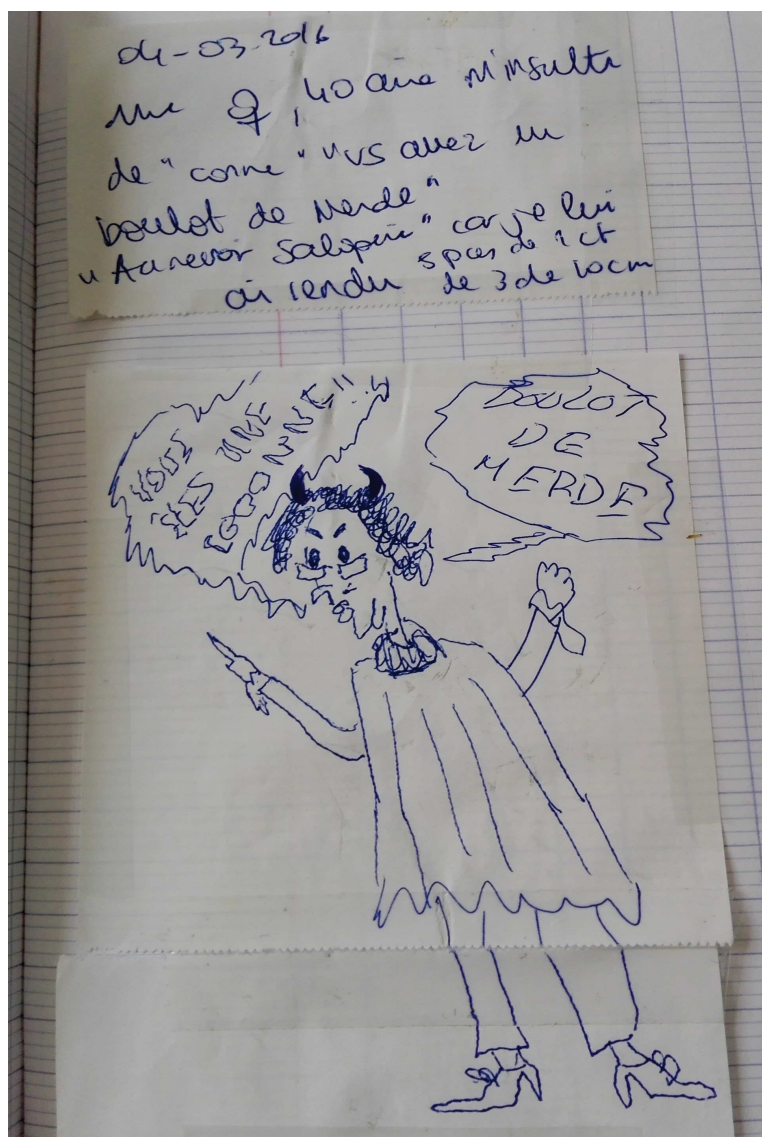 04-03-2016
Une ♀, 40 ans m'insulte
de "conne" "vs avez un
boulot de Merde"
"Au revoir Salope" car je lui
ai rendu 5 pces de 1 ct
de 3 de 10cm
VOUS
ÊTES UNE
COCONNE!!
BOULOT
DE
MERDE